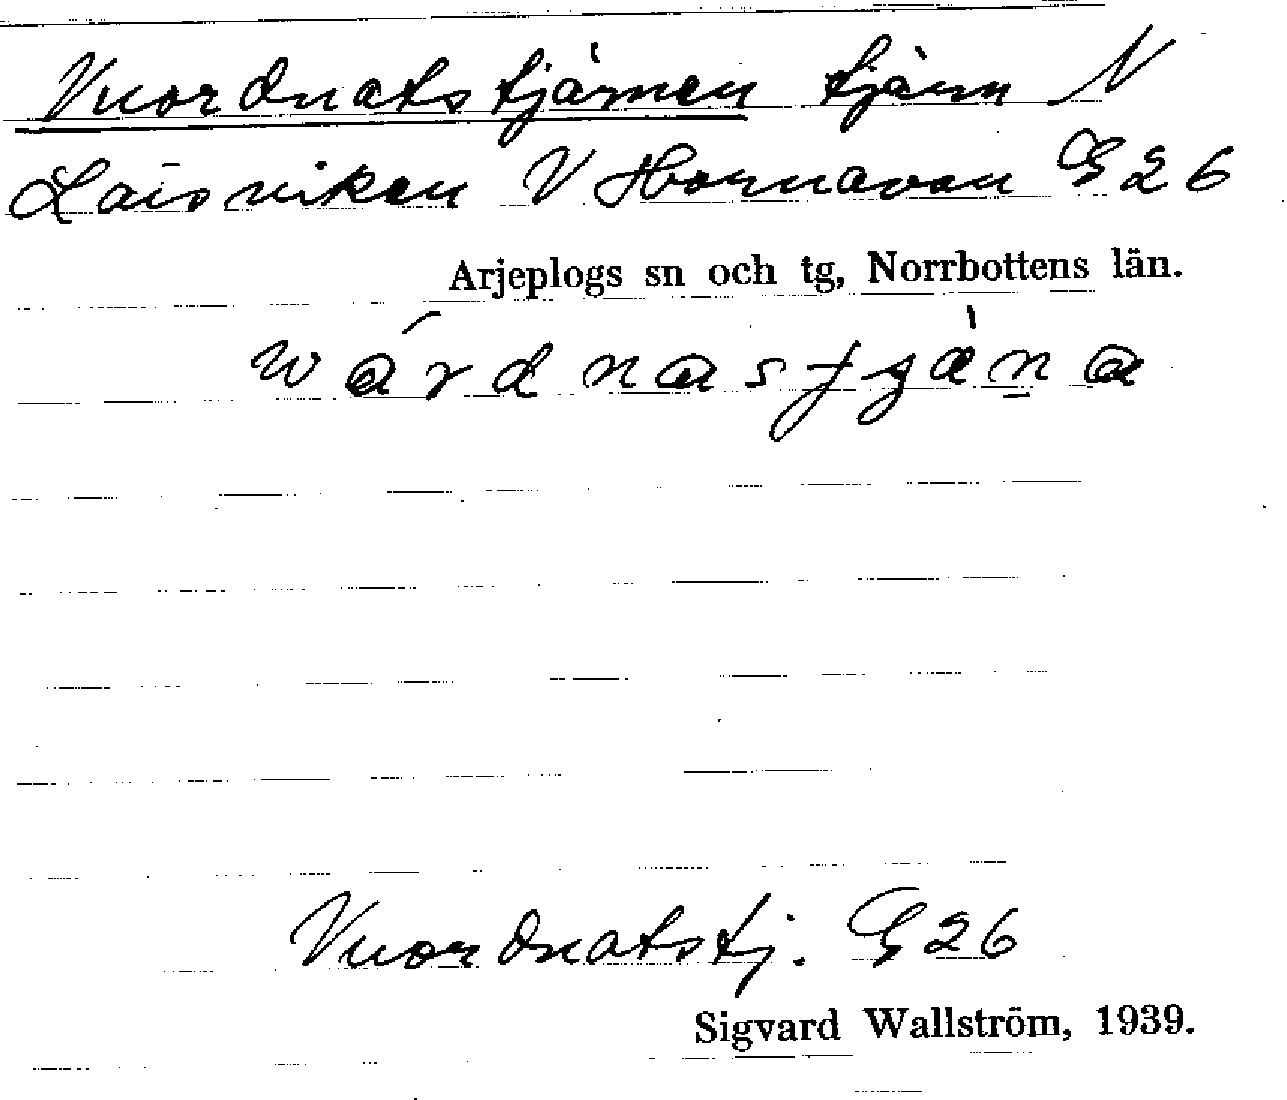 Vuordnatstjärnen tjärn N
Laisviken V Hornavan G 26
Arjeplogs sn och tg, Norrbottens län.
Vuordnatstj. G 26
Sigvard Wallström, 1939.